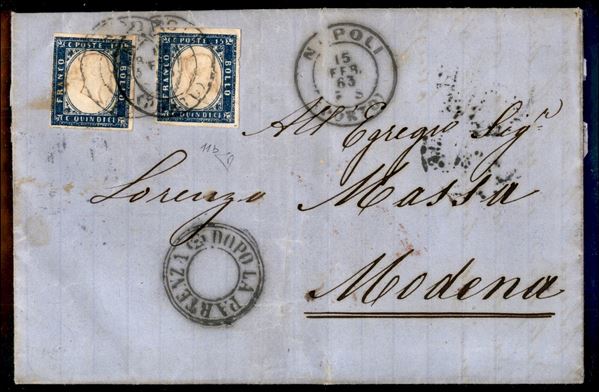 FRANCO C POSTE 15 BOLLO C QUINDICI
FRANCO C POSTE 15 BOLLO C QUINDICI
NAPOLI
15
FEB
63
All' Egregio Sigr
Lorenzo Massa
Modena
DOPO LA PARTENZA